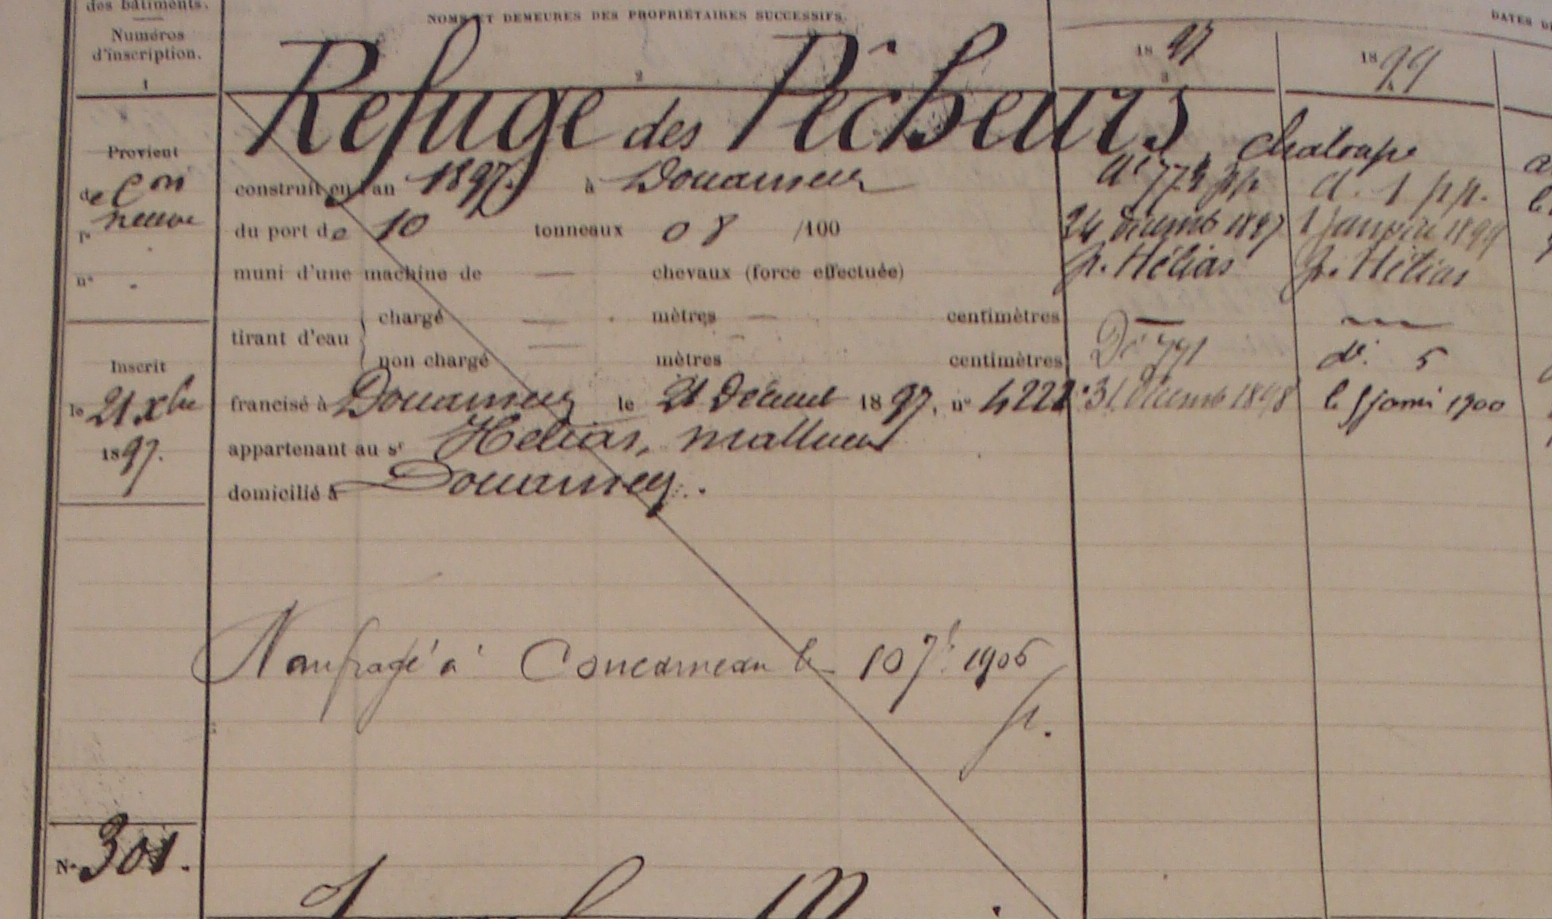 des bâtiments.
Numéros
d'inscription.
1
NOMS ET DEMEURES DES PROPRIÉTAIRES SUCCESSIFS.
2
18 97
3
18 99
DATES D
Refuge des Pêcheurs chaloupe
Provient
de Con
neuve
n°
construit en l'an 1897. à Douarnenez
du port de 10 tonneaux 08 /100
muni d'une machine de — chevaux (force effectuée)
tirant d'eau
chargé — mètres — centimètres
non chargé — mètres — centimètres
Inscrit
le 21 xbre
1897.
francisé à Douarnenez le 21 Décemb 1897, n° 4221
appartenant au sr Hélias, Mathieu
domicilié à Douarnenez.
24 Décemb 1897
p. Hélias
Do 771
31 Décemb 1898
d. 1 pp.
1 Janvier 1899
p. Hélias
do. 5
le 5 janvi 1900
Naufragé à Concarneau le 10 7b 1906
p.
N° 301.